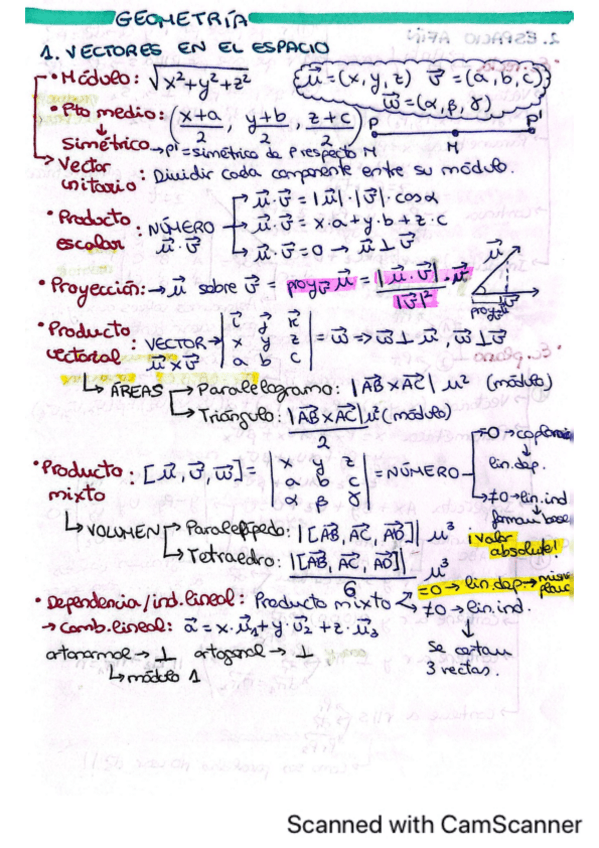 GEOMETRÍA
1. VECTORES EN EL ESPACIO
• Módulo: √x²+y²+z²
u⃗=(x,y,z) v⃗=(a,b,c)
w⃗=(α,β,γ)
• Pto medio: (x+a/2, y+b/2, z+c/2)
P M P'
Simétrico → P'=simétrico de P respecto M
→ Vector unitario: Dividir cada componente entre su módulo.
• Producto escalar u⃗·v⃗ : NÚMERO
→ u⃗·v⃗=|u⃗|·|v⃗|·cosα
→ u⃗·v⃗=x·a+y·b+z·c
→ u⃗·v⃗=0 → u⃗⊥v⃗
• Proyección: → u⃗ sobre v⃗ = proy v⃗ u⃗ = |u⃗·v⃗|/|v⃗|² · v⃗
u⃗
v⃗
• Producto vectorial u⃗×v⃗ : VECTOR →
| i⃗ j⃗ k⃗ |
| x y z | = w⃗ => w⃗⊥u⃗, w⃗⊥v⃗
| a b c |
↳ ÁREAS → Paralelogramo: |AB⃗×AC⃗| u² (módulo)
→ Triángulo: |AB⃗×AC⃗|/2 u² (módulo)
• Producto mixto : [u⃗,v⃗,w⃗]=
| x y z |
| a b c | = NÚMERO
| α β γ |
=0 → coplanarios
↓
lin.dep.
≠0 → lin.ind
forman base
↳ VOLUMEN → Paralepípedo: |[AB⃗, AC⃗, AD⃗]| u³
¡Valor absoluto!
→ Tetraedro: |[AB⃗, AC⃗, AD⃗]|/6 u³
• Dependencia/ind.lineal: Producto mixto
=0 → lin.dep. → mismo plano
≠0 → lin.ind.
↓
Se cortan
3 rectas.
→ Comb.lineal: a⃗=x·u⃗₁+y·u⃗₂+z·u⃗₃
ortonormal → ⊥ ortogonal → ⊥
↳ módulo 1
Scanned with CamScanner